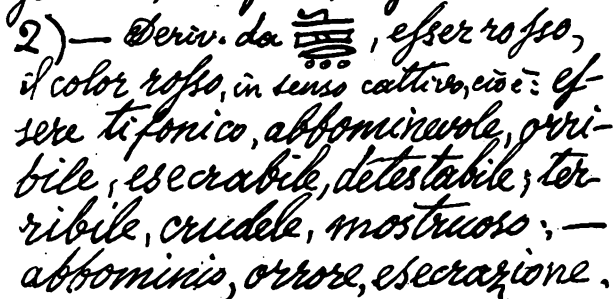 2) — Deriv. da , esser rosso,
il color rosso, in senso cattivo, cioè: es-
sere tifonico, abbominevole, orri-
bile, esecrabile, detestabile; ter-
ribile, crudele, mostruoso; —
abbominio, orrore, esecrazione.